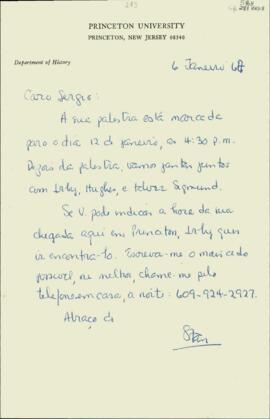 213
PRINCETON UNIVERSITY
PRINCETON, NEW JERSEY 08540
Department of History
6 Janeiro 68
Caro Sergio:
A sua palestra está marcada
para o dia 12 de janeiro, as 4:30 p.m.
Depois da palestra, vamos jantar juntos
com Irby, Hughes, e talvez Sigmund.
Se V. pode indicar a hora da sua
chegada aqui em Princeton, Irby quer
ir encontra-lo. Escreva-me o mais cedo
possivel, ou melhor, chame-me pelo
telefone em casa, a noite: 609-924-2927.
Abraço do
Stan